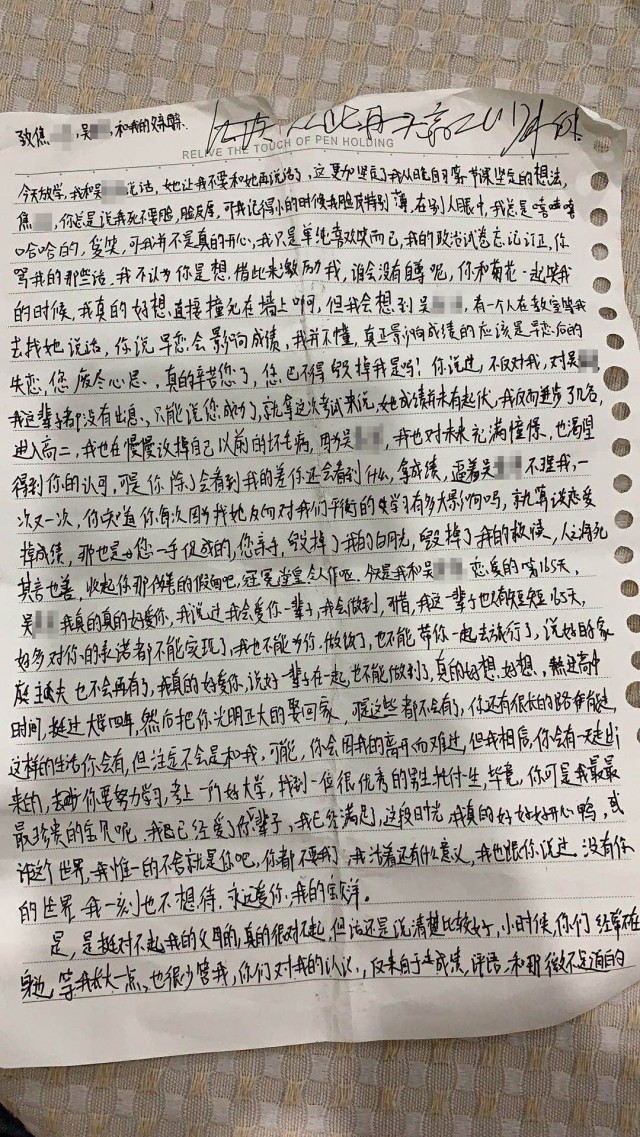 致焦 ,吴 ,和我的父母亲.
RELIVE THE TOUCH OF PEN HOLDING
今天放学,我和吴 说话,她让我不要和她再说话了,这更加坚定了我从晚自习第一节课坚定的想法,
焦 ,你总是说我死不要脸,脸皮厚,可我记得小的时候我脸皮特别薄,在别人眼中,我总是嘻嘻嘻
哈哈哈的,爱笑,可我并不是真的开心,我只是单纯喜欢笑而已,我的政治试卷忘记订正,你
骂我的那些话,我不认为你是想借此来激励我,谁会没有自尊呢,你和菊花一起笑我
的时候,我真的好想直接撞死在墙上啊,但我会想到吴 ,有一个人在教室等我
去找她说话,你说早恋会影响成绩,我并不懂,真正影响成绩的应该是早恋后的
失恋,您废尽心思,真的辛苦您了,您巴不得毁掉我是吗!你说过,不仅对我,对吴
我这辈子都没有出息,只能说您成功了,就拿这次考试来说,她成绩并未有起伏,我反而进步了几名,
进入高二,我也在慢慢改掉自己以前的坏毛病,因为吴 ,我也对未来充满憧憬,也渴望
得到你的认可,可是你除了会看到我的差你还会看到什么,拿成绩,逼着吴 不理我,一
次又一次,你知道你每次因为我她反而对我们平衡的学习有多大影响吗,就算谈恋爱
掉成绩,那也是由您一手促成的,您亲手毁掉了我的白月光,毁掉了我的救赎,人之将死
其言也善,收起你那伪善的假面吧,冠冕堂皇令人作呕.今天是我和吴 恋爱的第165天,
吴 我真的真的好爱你,我说过我会爱你一辈子,我会做到,可惜,我这一辈子也只有短短165天,
好多对你的承诺都不能实现了,我也不能为你做饭了,也不能带你一起去旅行了,说好的家
庭主夫也不会再有了,我真的好爱你,说好一辈子在一起,也不能做到了,真的好想好想,熬过高中
时间,挺过大学四年,然后把你光明正大的娶回家,可这些都不会有了,你还有很长的路
这样的生活你会有,但注定不会是和我,可能,你会因我的离开而难过,但我相信,你会有一天走出
来的,去吧你要努力学习,考上一所好大学,找到一位很优秀的男生托付一生,毕竟,你可是我最最
最珍贵的宝贝呢,我已经爱了你一辈子,我已经满足,这段时光,我真的好好好开心鸭,或
许这个世界,我惟一的不舍就是你吧,你都不要我了,我活着还有什么意义,我也跟你说过,没有你
的世界,我一刻也不想待,永远爱你,我的宝 .
是,是挺对不起我的父母的,真的很对不起,但话还是说清楚比较好,小时候,你们经常不在
身边,等我长大一点,也很少管我,你们对我的认识,仅来自于成绩,评语,和那微不足道的